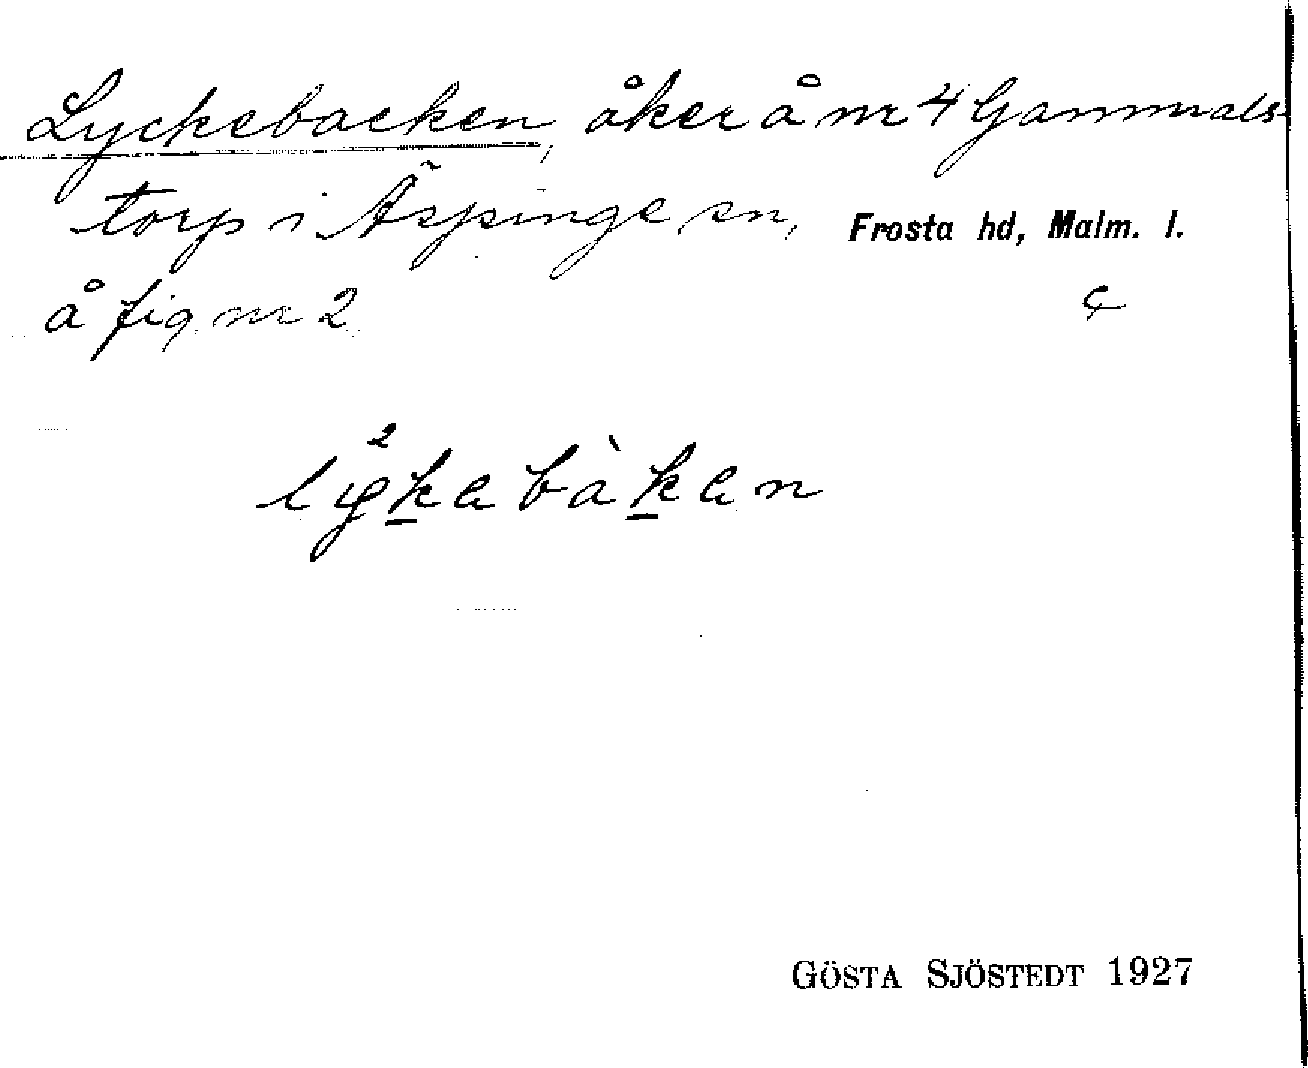 Lyckebacken, åker å nr 4 Gammals-
torp i Äspinge sn, Frosta hd, Malm. l.
å fig nr 2
GÖSTA SJÖSTEDT 1927